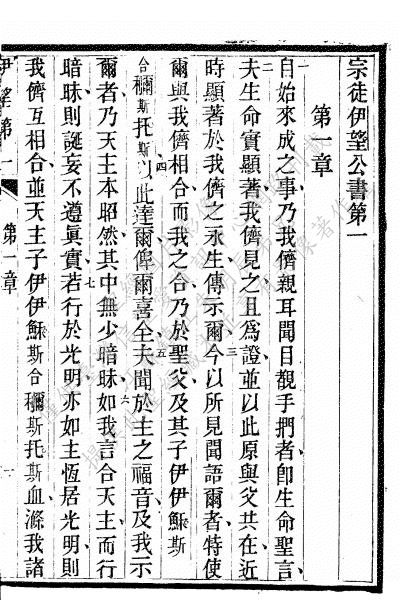 宗徒伊望公書第一
第一章
一自始來成之事乃我儕親耳聞目覩手捫者卽生命聖言
二夫生命實顯著我儕見之且爲證並以此原與父共在近
時顯著於我儕之永生傳示爾三今以所見聞語爾者特使
爾與我儕相合而我之合乃於聖父及其子伊伊穌斯
合穪斯托斯四以此達爾俾爾喜全五夫聞於主之福音及我示
爾者乃天主本昭然其中無少暗昧六如我言合天主而行
暗昧則誕妄不遵眞實七若行於光明亦如主恆居光明則
我儕互相合並天主子伊伊穌斯合穪斯托斯血滌我諸
伊望第一 第一章 一